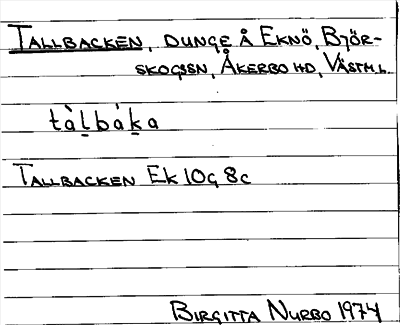 TALLBACKEN, DUNGE Å EKNÖ, BJÖR-
SKOGSSN, ÅKERBO HD, VÄSTML.
tàḻbáḵa
TALLBACKEN EK 10G 8c
BIRGITTA NURBO 1974